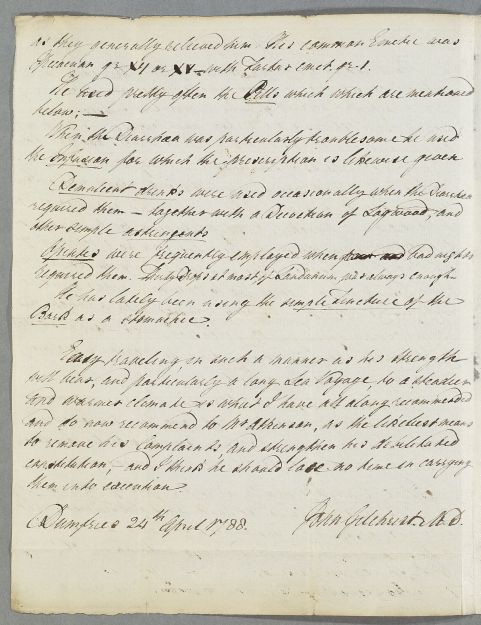 as they generally relieved him. His common Emetic was
Ipecacuan gr XV or XV with Tartar emet. gr. 1.
He used pretty often the Pills which which are mentioned
below; —
When the Diarrhœa was particularly troublesome he used
the infusion for which the prescription is likewise given
Demulcent drinks were used occasionally when the Diarrhœa
required them — together with a Decoction of Logwood, and
other simple astringents
Opiates were frequently employed when bad nights
required them. Thirty Drops at most of Laudanum was always enough
He has lately been using the simple Tincture of the
Bark as a stomachic.
Easy traveling in such a manner as his strength
will bear, and particularly a long Sea Voyage, to a steadier
and warmer climate is what I have all along recommended
and do now recommend to Mr Atkinson, as the likeliest means
to remove his Complaints and strengthen his debilitated
constitution, and I think he should lose no time in carrying
them into execution.
Dumfries 24th April 1788. John Gilchrist M.D.